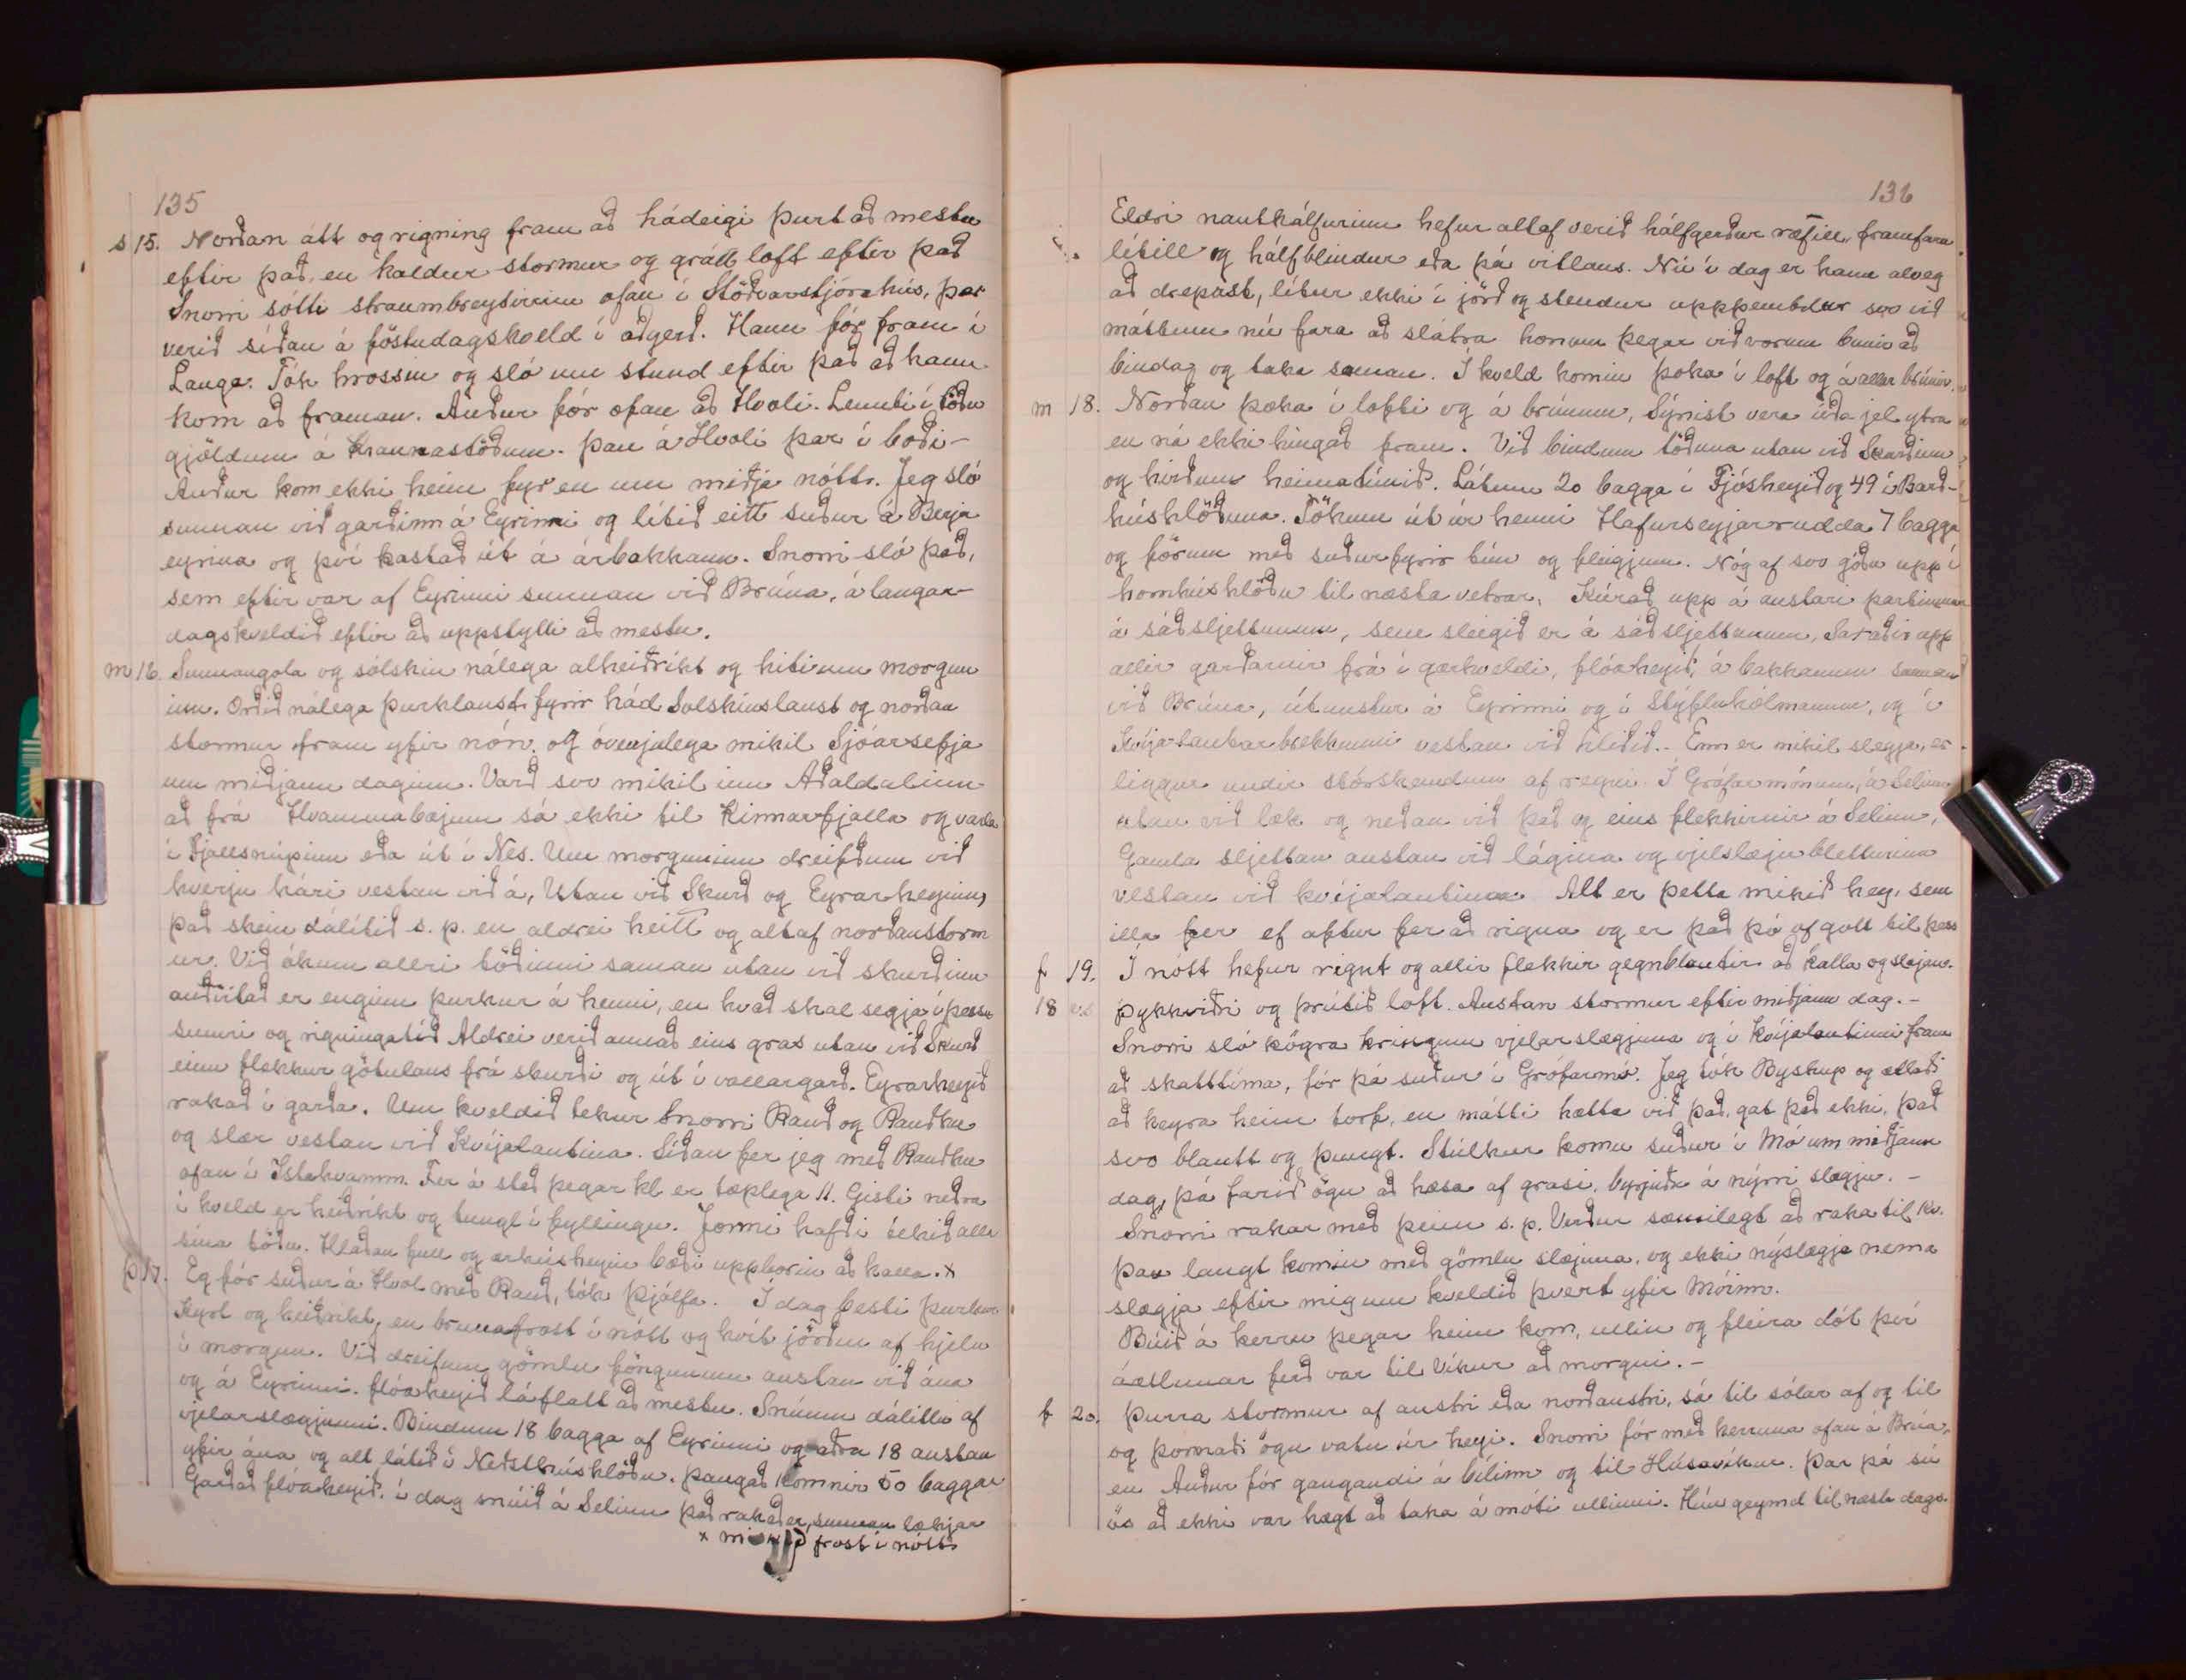 135
s 15. Norðan átt og rigning fram að hádeigi þurt að mestu
eftir það, en kaldur stormur og grátt loft eftir það
Snorri sótti straumbreytirinn ofan í Stöðvarstjórahús, þar
verið síðan á föstudagskveld í aðgerð. Hann fór fram í
Lauga. Tók hrossin og sló um stund eftir það að hann
kom að framan. Auður fór ofan að Hvoli. Lennti í töðu
gjöldum á Hraunastöðum. þau á Hvoli þar í boði-
Auður kom ekki heim fyr en um miðja nótt. Jeg sló
sunnan við garðinn á Eyrinni og lítið eitt suður á Berja
eyrina og því kastað út á árbakkann. Snorri sló það,
sem eftir var af Eyrinni sunnan við Brúna, á laugar-
dagskveldið eftir að uppstytti að mestu.
m 16. Sunnangola og sólskin nálega alheiðríkt og hiti um morgun
inn. Orðið nálega þurklaust fyrir hád Solskinslaust og norðan
stormur fram yfir nón. og óvenjulega mikil Sjóarsefja
um miðjann daginn. Varð svo mikil inn Aðaldalinn
að frá Hvammabæjum sá ekki til Kinnarfjalla og varla
í Fjallsnúpinn eða út í Nes. Um morguninn dreifðum við
hverju hári vestan við á, Utan við Skurð og Eyrarheyinu,
það skein dálítið s. p. en aldrei heitt og altaf norðanstorm
ur. Við ókum allri töðunni saman utan við skurðinn
auðvitað er enginn þurkur á henni, en hvað skal segja í þessu
sumri og rigningatíð Aldrei verið annað eins gras utan við Skurð
einn flekkur götulaus frá skurði og út í vallargarð. Eyrarheyið
rakað í garða. Um kveldið tekur Snorri Rauð og Rauðku
og slær vestan við Kvíjalautina. Síðan fer jeg með Rauðku
ofan í Ystahvamm. Fer á stað þegar kl er tæplega 11. Gisti neðra
í kveld er heiðríkt og tungl í fyllingu. Jonni hafði tekið alla
sína töðu. Hlaðan full og ærhúsheyin bæði uppborin að kalla. x
þ 17. Eg fór suður á Hvol með Rauð, tók Þjálfa. Í dag besti þurkur
Kyrt og heiðríkt, en brunafrost í nótt og hvít jörðin af hjelu
í morgun. Við dreifum gömlu föngunum austan við ána
og á Eyrinni. flóaheyið lá flatt að mestu. Snúum dálitlu af
vjelarslægjunni. Bindum 18 bagga af Eyrinni og aðra 18 austan
yfir ána og alt látið í Neðsthúshlöðu. þangað komnir 50 baggar
Garðað flóaheyið. í dag snúið á Selinu það rakað er, sunnan lækjar
x mikið frost í nótt
136
Eldri nautkálfurinn hefur altaf verið hálfgerður ræfill, framfara
lítill og hálfblindur eða þá vitlaus. Nú í dag er hann alveg
að drepast, lítur ekki í jörð og stendur uppþembdur svo við
máttum nú fara að slátra honum þegar við vorum búnir að
binda og taka saman. Í kveld komin þoka í loft og á allar brúnir.
m 18. Norðan þoka í lofti og á brúnum, Sýnist vera úða jel ytra
en ná ekki hingað fram. Við bindum töðuna utan við Skurðinn
og hirðum heimatúnið. Látum 20 bagga í Fjósheyið og 49 í Barð-
húshlöðuna. Tökum út úr henni Hafurseyjarrudda 7 bagga
og förum með suður fyrir tún og fleigjum. Nóg af svo góðu upp í
hornhúshlöðu til næsta vetrar. Kúrað upp á austari partinum
á sáðsljettunum, sem slegið er á sáðsljettunum, Saxaðir upp
allir garðarnir frá í gærkveldi, flóaheyið, á bakkanum sunnan
við Brúna, útunstur á Eyrinni og í Stýfluhólmanum, og í
Kvíjalautarbrekkunni vestan við hliðið. - Enn er mikil slægja, er
liggur undir stórskemdum af regni. Í Grófarmónum, á Selinu
utan við læk og neðan við það og eins flekkirnir á Selinu,
Gamla sljettan austan við lágina og vjelslæjubletturinn
vestan við kvíjalautina. Alt er þetta mikið hey, sem
illa fer ef aftur fer að rigna og er það þó of gott til þess
f 19. Í nótt hefur rignt og allir flekkir gegnblautir að kalla og slæjan.
18 v.s. þykkviðri og þrútið loft. Austan stormur eftir miðjann dag. -
Snorri sló kögra kringum vjelarslægjuna og í Kvíjalautinni fram
að skatttíma, fór þá suður í Grófarmó. Jeg tók Byskup og ætlaði
að keyra heim torf, en mátti hætta við það, gat það ekki, það
svo blautt og þungt. Stúlkur komu suður í Mó um miðjann
dag, þá farið ögn að hæsa af grasi, byrjuðu á nýrri slægju. -
Snorri rakar með þeim s. p. Verður sæmilegt að raka til kv.
þau langt komin með gömlu slæjuna, og ekki nýslægja nema
slægja eftir mig um kveldið þvert yfir Móinn.
Búið á kerru þegar heim kom, ullin og fleira dót því
áætlunar ferð var til Víkur að morgni. -
f 20. Þurra stormur af austri eða norðaustri, sá til sólar af og til
og þornaði ögn vatn úr heyi. Snorri fór með kerruna ofan á Brúa,
en Auður fór gangandi á bílinn og til Húsavíkur. Þar þá sú
ös að ekki var hægt að taka á móti ullinni. Hún geymd til næsta dags.